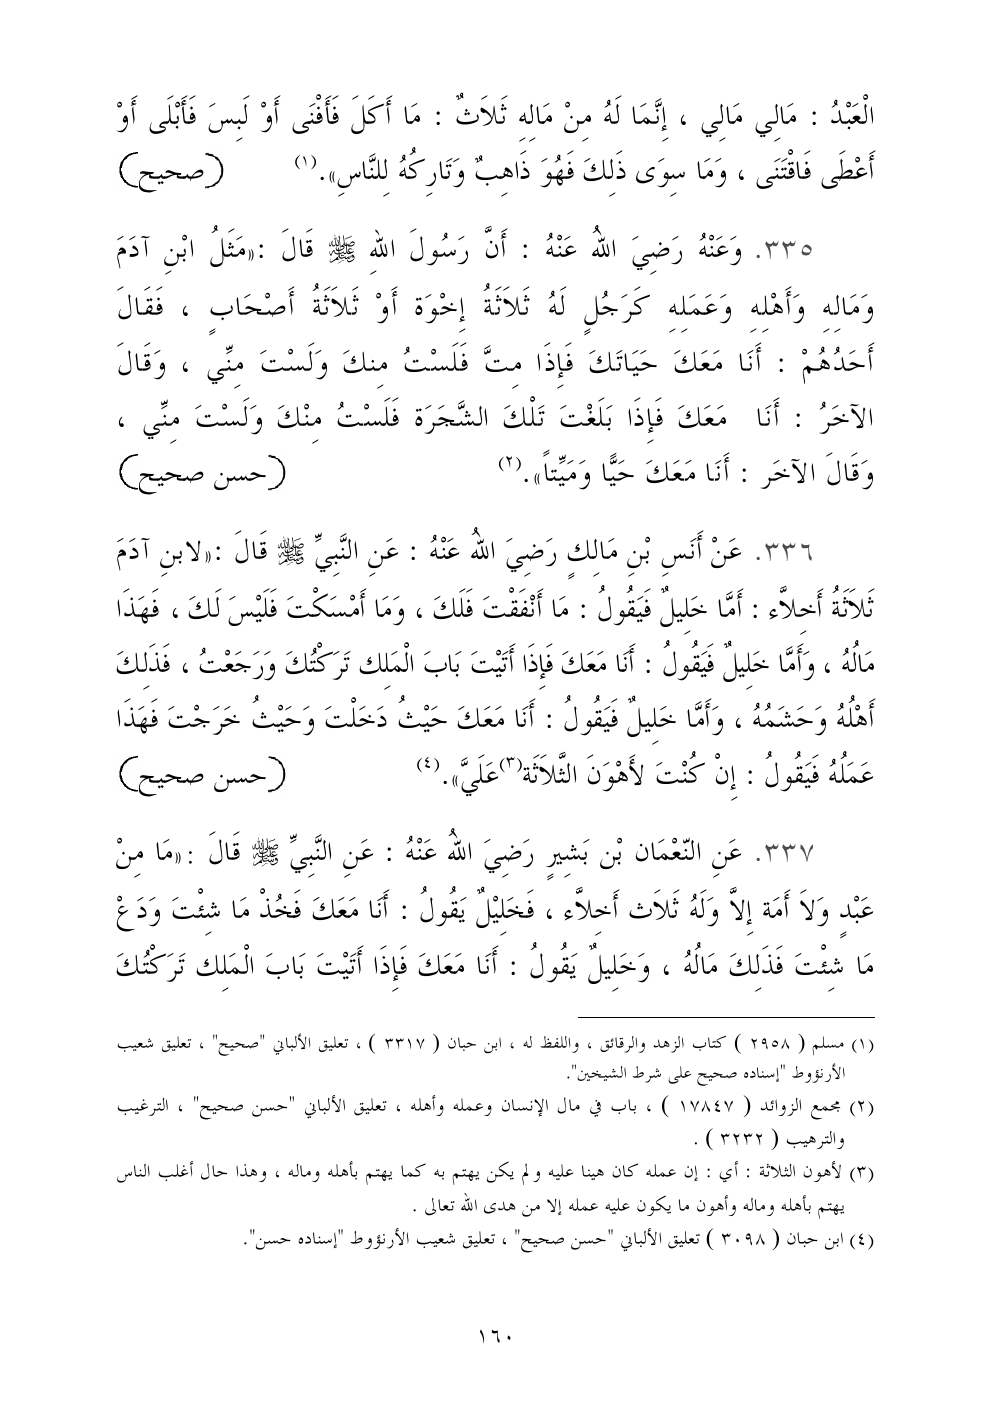 الْعَبْدُ : مَالِي مَالِي ، إِنَّمَا لَهُ مِنْ مَالِهِ ثَلاَثٌ : مَا أَكَلَ فَأَفْنَى أَوْ لَبِسَ فَأَبْلَى أَوْ
أَعْطَى فَاقْتَنَى ، وَمَا سِوَى ذَلِكَ فَهُوَ ذَاهِبٌ وَتَارِكُهُ لِلنَّاسِ».(١) (صحيح)
٣٣٥. وَعَنْهُ رَضِيَ اللهُ عَنْهُ : أَنَّ رَسُولَ اللهِ ﷺ قَالَ :«مَثَلُ ابْنِ آدَمَ
وَمَالِهِ وَأَهْلِهِ وَعَمَلِهِ كَرَجُلٍ لَهُ ثَلاَثَةُ إِخْوَة أَوْ ثَلاَثَةُ أَصْحَابٍ ، فَقَالَ
أَحَدُهُمْ : أَنَا مَعَكَ حَيَاتَكَ فَإِذَا مِتَّ فَلَسْتُ مِنكَ وَلَسْتَ مِنِّي ، وَقَالَ
الآخَرُ : أَنَا مَعَكَ فَإِذَا بَلَغْتَ تِلْكَ الشَّجَرَة فَلَسْتُ مِنْكَ وَلَسْتَ مِنِّي ،
وَقَالَ الآخَر : أَنَا مَعَكَ حَيًّا وَمَيِّتاً».(٢) (حسن صحيح)
٣٣٦. عَنْ أَنَسِ بْنِ مَالِكٍ رَضِيَ اللهُ عَنْهُ : عَنِ النَّبِيِّ ﷺ قَالَ :«لابنِ آدَمَ
ثَلاَثَةُ أَخِلاَّء : أَمَّا خَلِيلٌ فَيَقُولُ : مَا أَنْفَقْتَ فَلَكَ ، وَمَا أَمْسَكْتَ فَلَيْسَ لَكَ ، فَهَذَا
مَالُهُ ، وَأَمَّا خَلِيلٌ فَيَقُولُ : أَنَا مَعَكَ فَإِذَا أَتَيْتَ بَابَ الْمَلِك تَرَكْتُكَ وَرَجَعْتُ ، فَذَلِكَ
أَهْلُهُ وَحَشَمُهُ ، وَأَمَّا خَلِيلٌ فَيَقُولُ : أَنَا مَعَكَ حَيْثُ دَخَلْتَ وَحَيْثُ خَرَجْتَ فَهَذَا
عَمَلُهُ فَيَقُولُ : إِنْ كُنْتَ لأَهْوَنَ الثَّلاَثَة(٣)عَلَيَّ».(٤) (حسن صحيح)
٣٣٧. عَنِ النّعْمَان بْن بَشِيرٍ رَضِيَ اللهُ عَنْهُ : عَنِ النَّبِيِّ ﷺ قَالَ :«مَا مِنْ
عَبْدٍ وَلاَ أَمَة إِلاَّ وَلَهُ ثَلاَث أَخِلاَّء ، فَخَلِيْلٌ يَقُولُ : أَنَا مَعَكَ فَخُذْ مَا شِئْتَ وَدَعْ
مَا شِئْتَ فَذَلِكَ مَالُهُ ، وَخَلِيلٌ يَقُولُ : أَنَا مَعَكَ فَإِذَا أَتَيْتَ بَابَ الْمَلِك تَرَكْتُكَ
(١) مسلم ( ٢٩٥٨ ) كتاب الزهد والرقائق ، واللفظ له ، ابن حبان ( ٣٣١٧ ) ، تعليق الألباني "صحيح" ، تعليق شعيب
الأرنؤوط "إسناده صحيح على شرط الشيخين".
(٢) مجمع الزوائد ( ١٧٨٤٧ ) ، باب في مال الإنسان وعمله وأهله ، تعليق الألباني "حسن صحيح" ، الترغيب
والترهيب ( ٣٢٣٢ ) .
(٣) لأهون الثلاثة : أي : إن عمله كان هينا عليه ولم يكن يهتم به كما يهتم بأهله وماله ، وهذا حال أغلب الناس
يهتم بأهله وماله وأهون ما يكون عليه عمله إلا من هدى الله تعالى .
(٤) ابن حبان ( ٣٠٩٨ ) تعليق الألباني "حسن صحيح" ، تعليق شعيب الأرنؤوط "إسناده حسن".
١٦٠